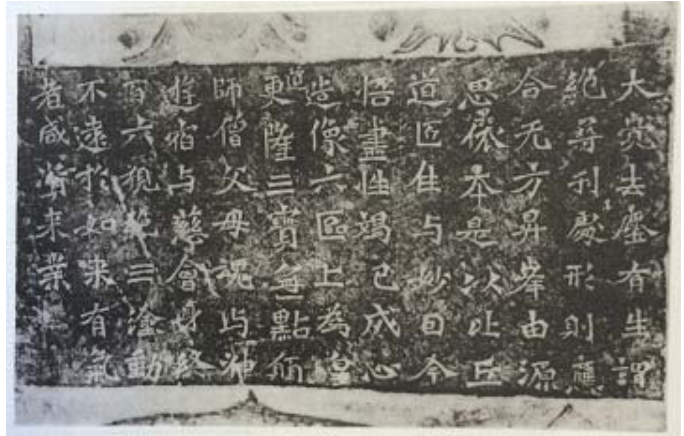 大覺去塵有生謂
絕尋利處形則應
合无方昇峯由源
思本是以比丘
道匠住与妙日今
悟盡性竭已成心
造像六區上為皇
道更隆三寶點
師僧父母魂与神
遊宿与慈會身終
百六三塗動
不遠於如来有氣
者咸来業